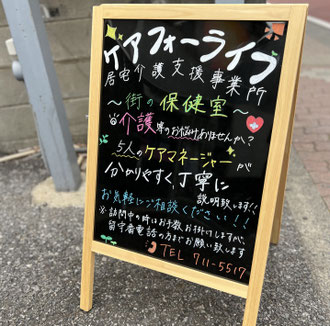 ケアフォーライフ
居宅介護支援事業所
～街の保健室～
介護等のお悩みありませんか？
5人のケアマネージャーが
分かりやすく、丁寧に
説明致します!!
お気軽にご相談ください!!
※訪問中の時はお手数お掛けしますが、
留守番電話の方までお願い致します
TEL 711-5517